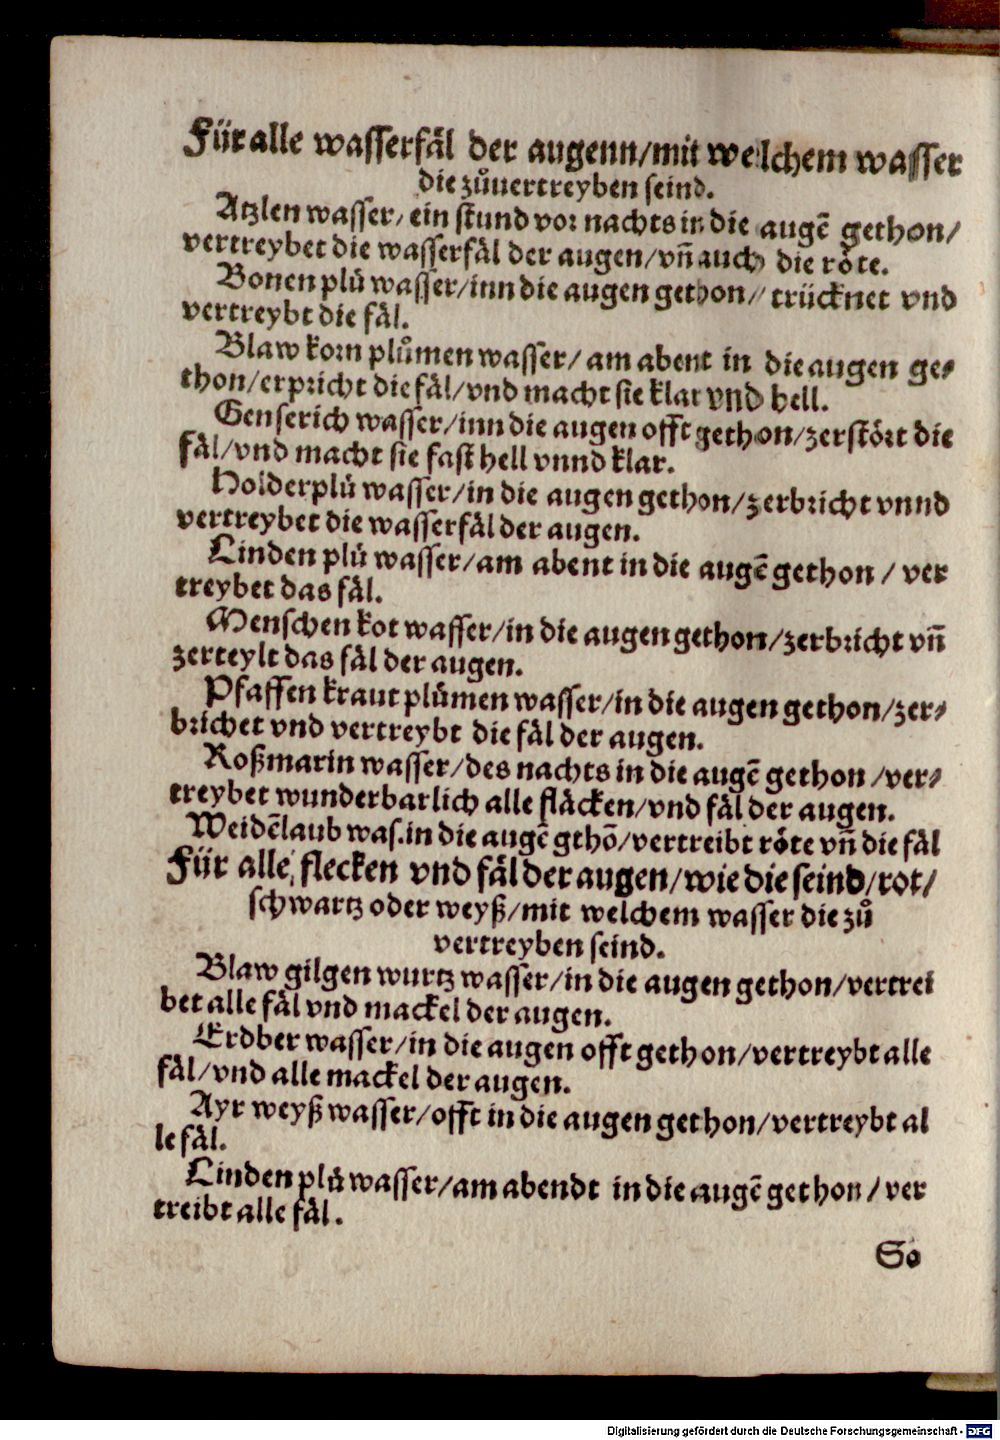 Für alle wasserfäl der augenn/mit welchem wasser
die zůuertreyben seind.
Atzlen wasser/ein stund vor nachts in die augē gethon/
vertreybet die wasserfäl der augen/vñ auch die röte.
Bonen plů wasser/inn die augen gethon/ trücknet vnd
vertreybt die fäl.
Blaw korn plůmen wasser/ am abent in die augen ge⸗
thon/erpricht die fäl/vnd macht sie klar vnd hell.
Genserich wasser/inn die augen offt gethon/zerstört die
fäl/vnd macht sie fast hell vnnd klar.
Holderplů wasser/in die augen gethon/zerbricht vnnd
vertreybet die wasserfäl der augen.
Linden plů wasser/am abent in die augē gethon / ver
treybet das fäl.
Menschen kot wasser/in die augen gethon/zerbricht vñ
zerteylt das fäl der augen.
Pfaffen kraut plůmen wasser/in die augen gethon/zer⸗
brichet vnd vertreybt die fäl der augen.
Roßmarin wasser/des nachts in die augē gethon /ver⸗
treybet wunderbarlich alle fläcken/vnd fäl der augen.
Weidēlaub was.in die augē gthō/vertreibt röte vñ die fäl
Für alle flecken vnd fäl der augen/wie die seind/rot/
schwartz oder weyß/mit welchem wasser die zů
vertreyben seind.
Blaw gilgen wurtz wasser/in die augen gethon/vertrei
bet alle fäl vnd mackel der augen.
Erdber wasser/in die augen offt gethon/vertreybt alle
fäl/vnd alle mackel der augen.
Ayr weyß wasser/offt in die augen gethon/vertreybt al
le fäl.
Linden plů wasser/am abendt in die augē gethon / ver
treibt alle fäl.
So
Digitalisierung gefördert durch die Deutsche Forschungsgemeinschaft - DFG